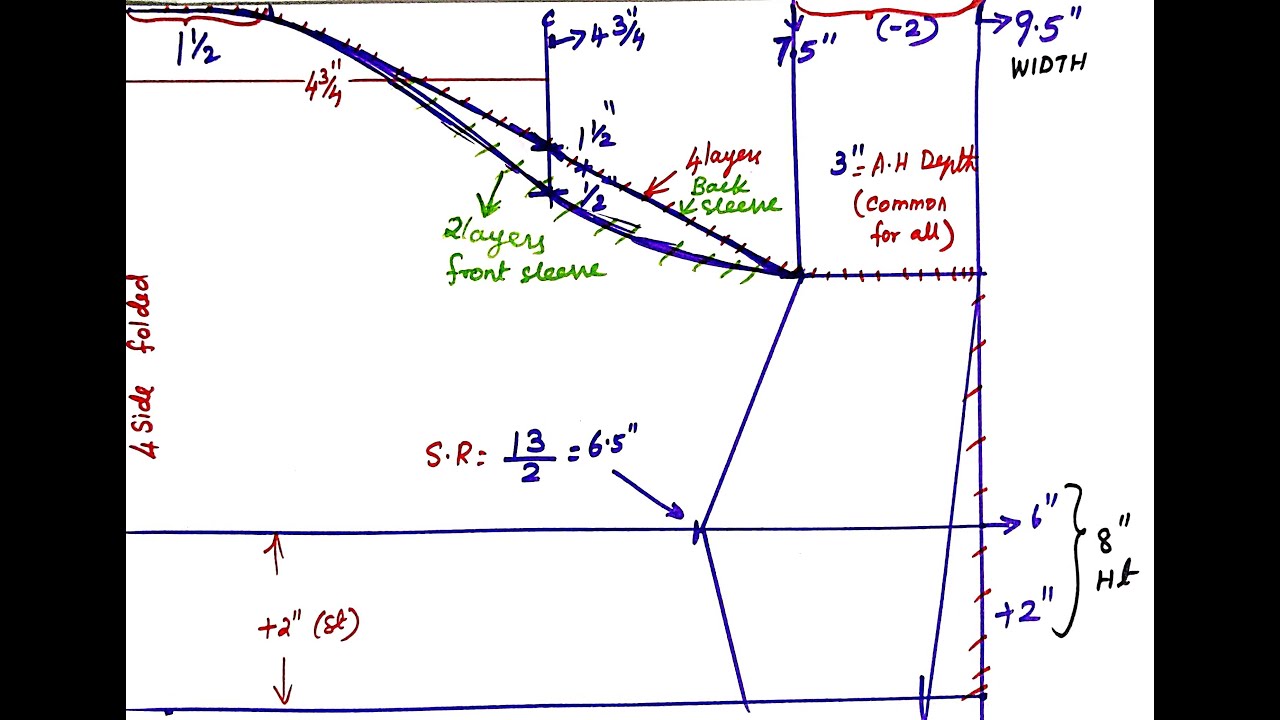 1 1/2
4 3/4"
→ 4 3/4"
7.5"
(-2)
→ 9.5"
WIDTH
1 1/2"
1/2"
4 layers
Back
sleeve
3" - A.H Depth
(common
for all)
2 layers
front sleeve
4 Side folded
S.R = 13/2 = 6.5"
→ 6"
+2"
8"
Ht
+2" (St)